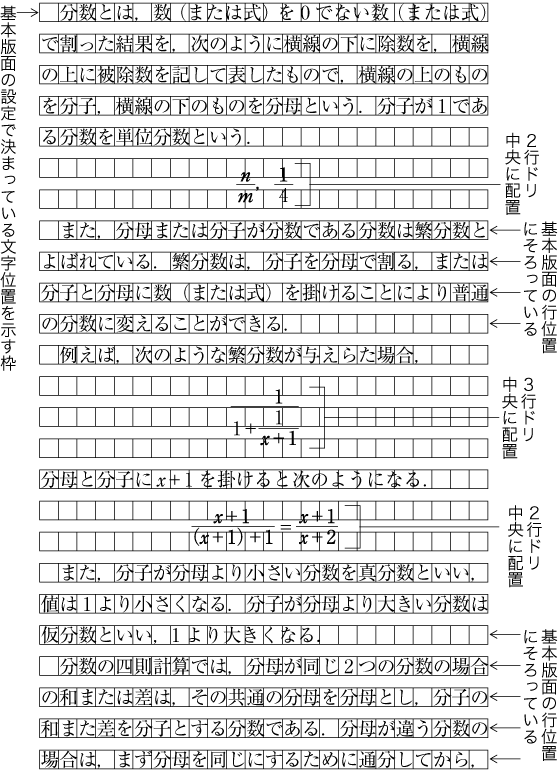 基本版面の設定で決まっている文字位置を示す枠
分数とは，数（または式）を０でない数（または式）
で割った結果を，次のように横線の下に除数を，横線
の上に被除数を記して表したもので，横線の上のもの
を分子，横線の下のものを分母という．分子が１であ
る分数を単位分数という．
n/m， 1/4
２行ドリ
中央に配置
また，分母または分子が分数である分数は繁分数と
よばれている．繁分数は，分子を分母で割る，または
分子と分母に数（または式）を掛けることにより普通
の分数に変えることができる．
基本版面の行位置
にそろっている
例えば，次のような繁分数が与えらた場合，
1/(1+1/(x+1))
３行ドリ
中央に配置
分母と分子にx+1を掛けると次のようになる．
(x+1)/((x+1)+1)=(x+1)/(x+2)
２行ドリ
中央に配置
また，分子が分母より小さい分数を真分数といい，
値は１より小さくなる．分子が分母より大きい分数は
仮分数といい，１より大きくなる．
分数の四則計算では，分母が同じ２つの分数の場合
の和または差は，その共通の分母を分母とし，分子の
和また差を分子とする分数である．分母が違う分数の
場合は，まず分母を同じにするために通分してから，
基本版面の行位置
にそろっている